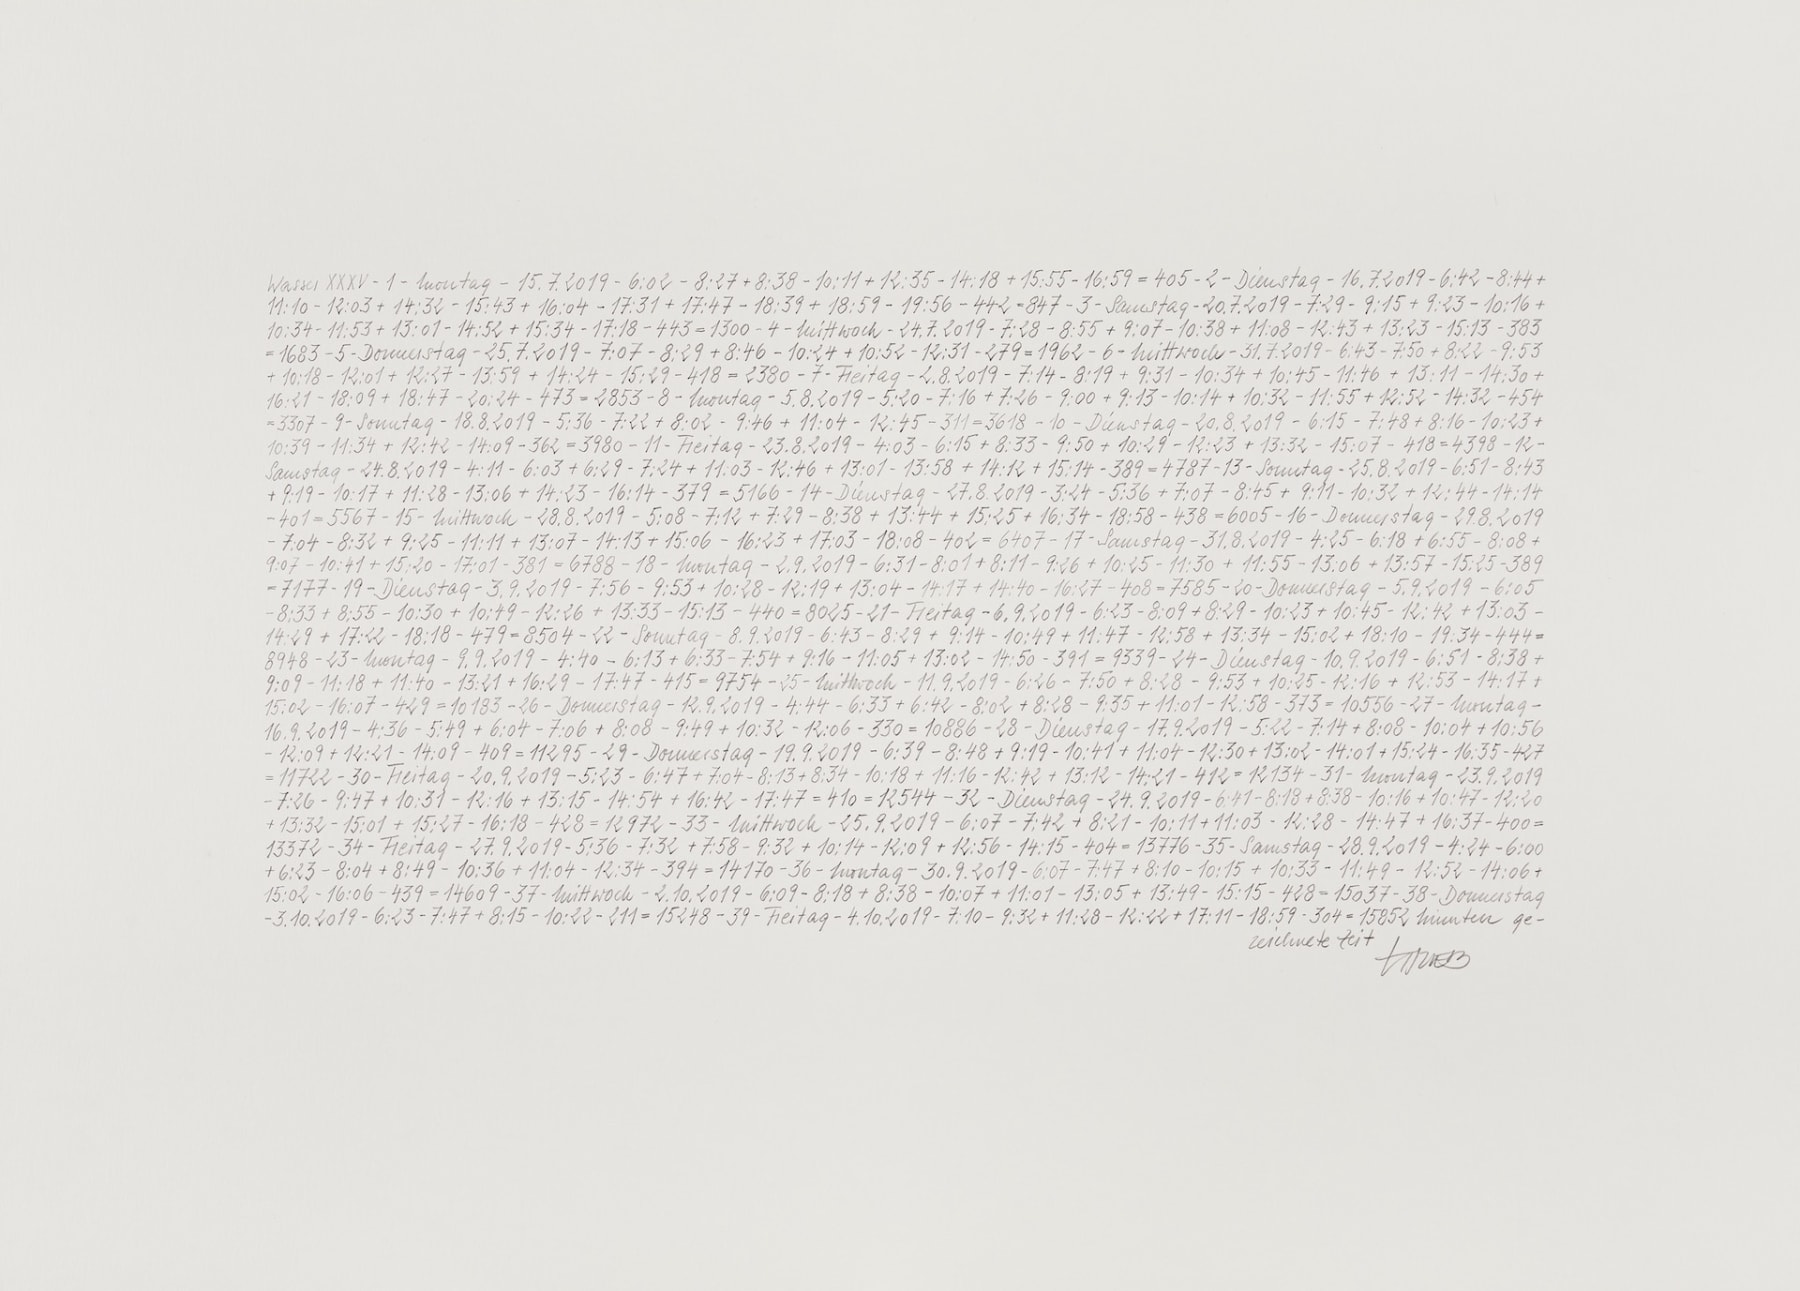 Wasser XXXV - 1 - Montag - 15.7.2019 - 6:02 - 8:27 + 8:38 - 10:11 + 12:35 - 14:18 + 15:55 - 16:59 = 405 - 2 - Dienstag - 16.7.2019 - 6:42 - 8:44 +
11:10 - 12:03 + 14:32 - 15:43 + 16:04 - 17:31 + 17:47 - 18:39 + 18:59 - 19:56 - 442 = 847 - 3 - Samstag - 20.7.2019 - 7:29 - 9:15 + 9:23 - 10:16 +
10:34 - 11:53 + 13:01 - 14:52 + 15:34 - 17:18 - 443 = 1300 - 4 - Mittwoch - 24.7.2019 - 7:28 - 8:55 + 9:07 - 10:38 + 11:08 - 12:43 + 13:23 - 15:13 - 383
= 1683 - 5 - Donnerstag - 25.7.2019 - 7:07 - 8:29 + 8:46 - 10:24 + 10:52 - 12:31 - 279 = 1962 - 6 - Mittwoch - 31.7.2019 - 6:43 - 7:50 + 8:22 - 9:53
+ 10:18 - 12:01 + 12:27 - 13:59 + 14:24 - 15:29 - 418 = 2380 - 7 - Freitag - 2.8.2019 - 7:14 - 8:19 + 9:31 - 10:34 + 10:45 - 11:46 + 13:11 - 14:30 +
16:21 - 18:09 + 18:47 - 20:24 - 473 = 2853 - 8 - Montag - 5.8.2019 - 5:20 - 7:16 + 7:26 - 9:00 + 9:13 - 10:14 + 10:32 - 11:55 + 12:52 - 14:32 - 454
= 3307 - 9 - Sonntag - 18.8.2019 - 5:36 - 7:22 + 8:02 - 9:46 + 11:04 - 12:45 - 311 = 3618 - 10 - Dienstag - 20.8.2019 - 6:15 - 7:48 + 8:16 - 10:23 +
10:39 - 11:34 + 12:42 - 14:09 - 362 = 3980 - 11 - Freitag - 23.8.2019 - 4:03 - 6:15 + 8:33 - 9:50 + 10:29 - 12:23 + 13:32 - 15:07 - 418 = 4398 - 12 -
Samstag - 24.8.2019 - 4:11 - 6:03 + 6:29 - 7:24 + 11:03 - 12:46 + 13:01 - 13:58 + 14:12 + 15:14 - 389 = 4787 - 13 - Sonntag - 25.8.2019 - 6:51 - 8:43
+ 9:19 - 10:17 + 11:28 - 13:06 + 14:23 - 16:14 - 379 = 5166 - 14 - Dienstag - 27.8.2019 - 3:24 - 5:36 + 7:07 - 8:45 + 9:11 - 10:32 + 12:44 - 14:14
- 401 = 5567 - 15 - Mittwoch - 28.8.2019 - 5:08 - 7:12 + 7:29 - 8:38 + 13:44 + 15:25 + 16:34 - 18:58 - 438 = 6005 - 16 - Donnerstag - 29.8.2019
- 7:04 - 8:32 + 9:25 - 11:11 + 13:07 - 14:13 + 15:06 - 16:23 + 17:03 - 18:08 - 402 = 6407 - 17 - Samstag - 31.8.2019 - 4:25 - 6:18 + 6:55 - 8:08 +
9:07 - 10:41 + 15:20 - 17:01 - 381 = 6788 - 18 - Montag - 2.9.2019 - 6:31 - 8:01 + 8:11 - 9:26 + 10:25 - 11:30 + 11:55 - 13:06 + 13:57 - 15:25 - 389
= 7177 - 19 - Dienstag - 3.9.2019 - 7:56 - 9:53 + 10:28 - 12:19 + 13:04 - 14:17 + 14:40 - 16:27 - 408 = 7585 - 20 - Donnerstag - 5.9.2019 - 6:05
- 8:33 + 8:55 - 10:30 + 10:49 - 12:26 + 13:33 - 15:13 - 440 = 8025 - 21 - Freitag - 6.9.2019 - 6:23 - 8:09 + 8:29 - 10:23 + 10:45 - 12:42 + 13:03 -
14:29 + 17:22 - 18:18 - 479 = 8504 - 22 - Sonntag - 8.9.2019 - 6:43 - 8:29 + 9:14 - 10:49 + 11:47 - 12:58 + 13:34 - 15:02 + 18:10 - 19:34 - 444 =
8948 - 23 - Montag - 9.9.2019 - 4:40 - 6:13 + 6:33 - 7:54 + 9:16 - 11:05 + 13:02 - 14:50 - 391 = 9339 - 24 - Dienstag - 10.9.2019 - 6:51 - 8:38 +
9:09 - 11:18 + 11:40 - 13:21 + 16:29 - 17:47 - 415 = 9754 - 25 - Mittwoch - 11.9.2019 - 6:26 - 7:50 + 8:28 - 9:53 + 10:25 - 12:16 + 12:53 - 14:17 +
15:02 - 16:07 - 429 = 10183 - 26 - Donnerstag - 12.9.2019 - 4:44 - 6:33 + 6:42 - 8:02 + 8:28 - 9:35 + 11:01 - 12:58 - 373 = 10556 - 27 - Montag -
16.9.2019 - 4:36 - 5:49 + 6:04 - 7:06 + 8:08 - 9:49 + 10:32 - 12:06 - 330 = 10886 - 28 - Dienstag - 17.9.2019 - 5:22 - 7:14 + 8:08 - 10:04 + 10:56
- 12:09 + 12:21 - 14:09 - 409 = 11295 - 29 - Donnerstag - 19.9.2019 - 6:39 - 8:48 + 9:19 - 10:41 + 11:04 - 12:30 + 13:02 - 14:01 + 15:24 - 16:35 - 427
= 11722 - 30 - Freitag - 20.9.2019 - 5:23 - 6:47 + 7:04 - 8:13 + 8:34 - 10:18 + 11:16 - 12:42 + 13:12 - 14:21 - 412 = 12134 - 31 - Montag - 23.9.2019
- 7:26 - 9:47 + 10:31 - 12:16 + 13:15 - 14:54 + 16:42 - 17:47 = 410 = 12544 - 32 - Dienstag - 24.9.2019 - 6:41 - 8:18 + 8:38 - 10:16 + 10:47 - 12:20
+ 13:32 - 15:01 + 15:27 - 16:18 - 428 = 12972 - 33 - Mittwoch - 25.9.2019 - 6:07 - 7:42 + 8:21 - 10:11 + 11:03 - 12:28 - 14:47 + 16:37 - 400 =
13372 - 34 - Freitag - 27.9.2019 - 5:36 - 7:32 + 7:58 - 9:32 + 10:14 - 12:09 + 12:56 - 14:15 - 404 = 13776 - 35 - Samstag - 28.9.2019 - 4:24 - 6:00
+ 6:23 - 8:04 + 8:49 - 10:36 + 11:04 - 12:34 - 394 = 14170 - 36 - Montag - 30.9.2019 - 6:07 - 7:47 + 8:10 - 10:15 + 10:33 - 11:49 - 12:52 - 14:06 +
15:02 - 16:06 - 439 = 14609 - 37 - Mittwoch - 2.10.2019 - 6:09 - 8:18 + 8:38 - 10:07 + 11:01 - 13:05 + 13:49 - 15:15 - 428 = 15037 - 38 - Donnerstag
- 3.10.2019 - 6:23 - 7:47 + 8:15 - 10:22 - 211 = 15248 - 39 - Freitag - 4.10.2019 - 7:10 - 9:32 + 11:28 - 12:22 + 17:11 - 18:59 - 304 = 15852 Minuten ge-
zeichnete Zeit